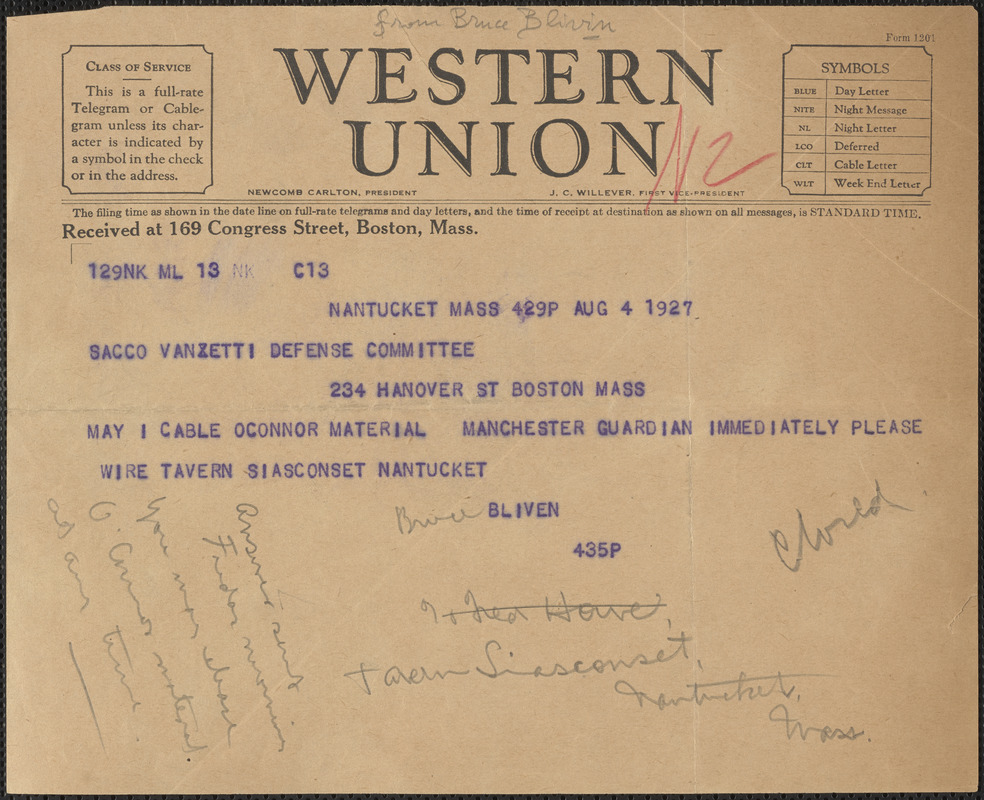 from Bruce Blivin
Form 1201
CLASS OF SERVICE
This is a full-rate
Telegram or Cable-
gram unless its char-
acter is indicated by
a symbol in the check
or in the address.
WESTERN
UNION
NEWCOMB CARLTON, PRESIDENT
J. C. WILLEVER, FIRST VICE-PRESIDENT
SYMBOLS
BLUE Day Letter
NITE Night Message
NL Night Letter
LCO Deferred
CLT Cable Letter
WLT Week End Letter
The filing time as shown in the date line on full-rate telegrams and day letters, and the time of receipt at destination as shown on all messages, is STANDARD TIME.
Received at 169 Congress Street, Boston, Mass.
129NK ML 13 NK C13
NANTUCKET MASS 429P AUG 4 1927
SACCO VANZETTI DEFENSE COMMITTEE
234 HANOVER ST BOSTON MASS
MAY I CABLE OCONNOR MATERIAL MANCHESTER GUARDIAN IMMEDIATELY PLEASE
WIRE TAVERN SIASCONSET NANTUCKET
Bruce BLIVEN
435P
Answer sent
Friday morning
You may release
O. Connor material
at any time.
To Fred Howe,
Tavern Siasconset,
Nantucket,
Mass.